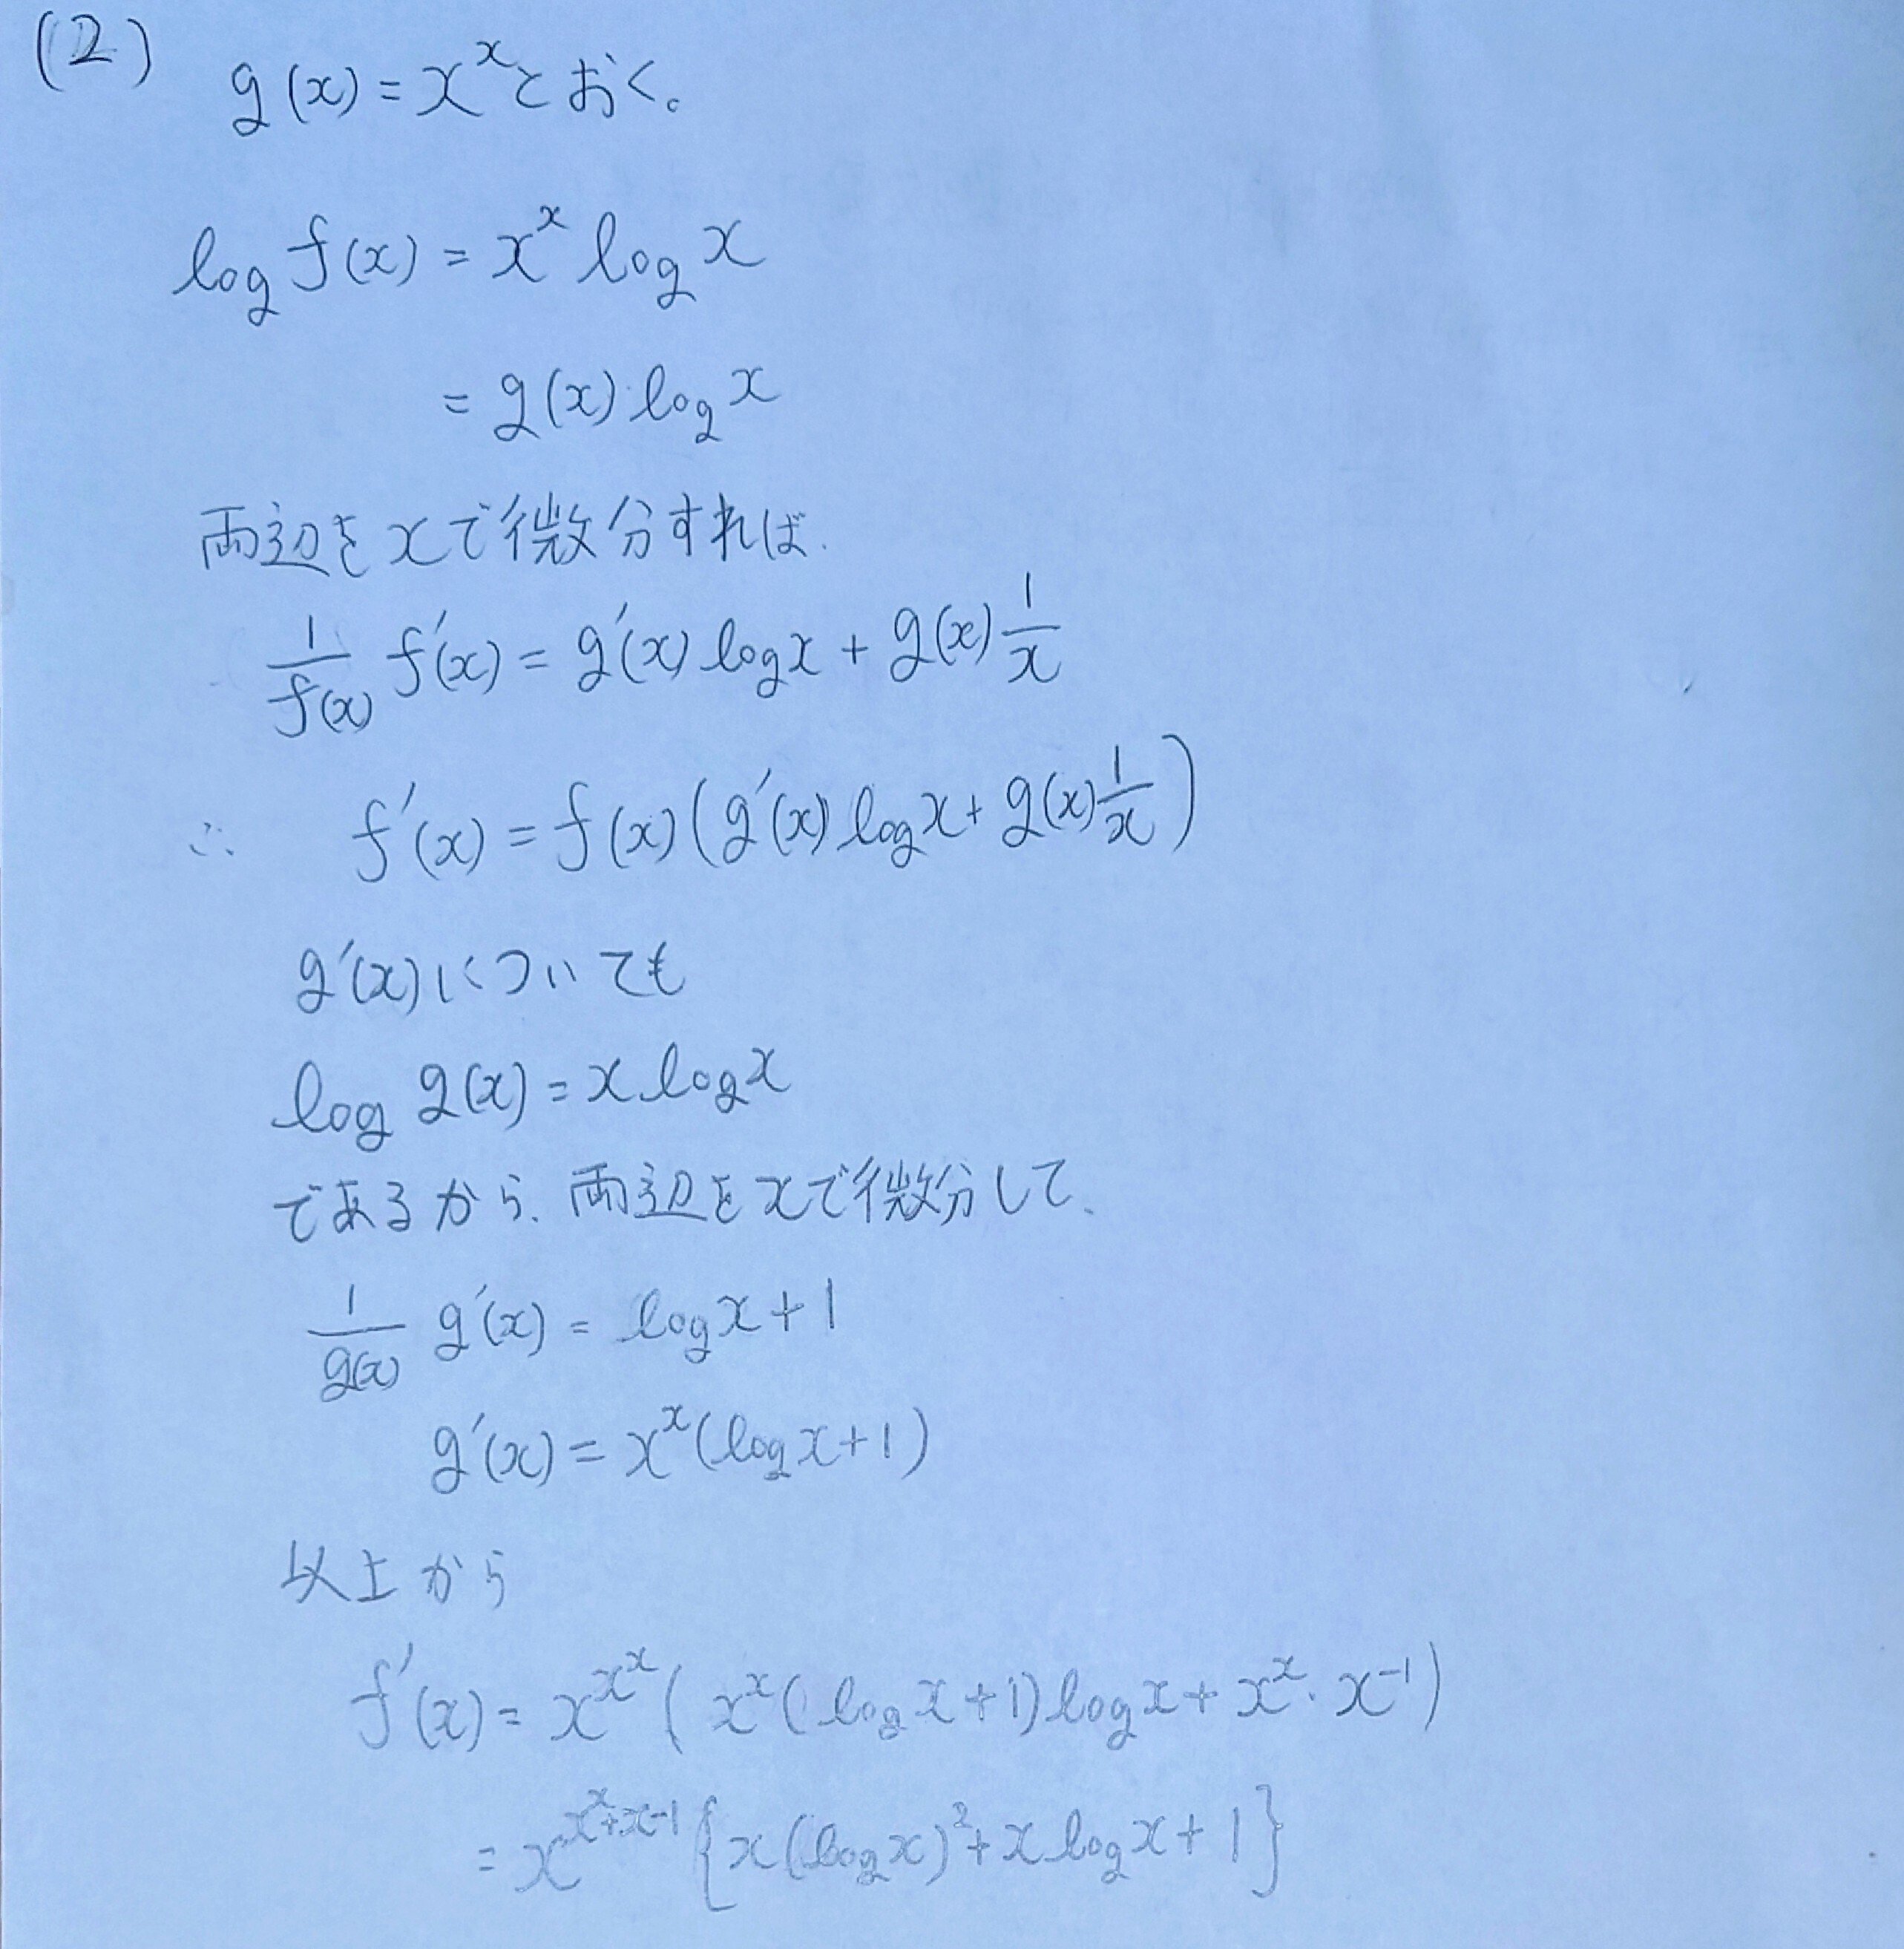 (2) g(x) = x^x とおく。
log f(x) = x^x log x
= g(x) log x
両辺をxで微分すれば.
1/f(x) f'(x) = g'(x) log x + g(x) 1/x
∴ f'(x) = f(x) (g'(x) log x + g(x) 1/x)
g'(x)についても
log g(x) = x log x
であるから、両辺をxで微分して、
1/g(x) g'(x) = log x + 1
g'(x) = x^x (log x + 1)
以上から
f'(x) = x^{x^x} ( x^x ( log x + 1) log x + x^x · x^{-1} )
= x^{x^x + x - 1} { x (log x)^2 + x log x + 1 }